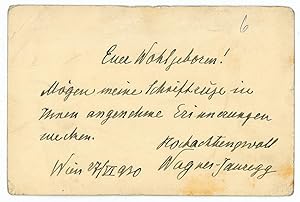 6
Euer Wohlgeboren!
Mögen meine Schriftzüge in
Ihnen angenehme Erinnerungen
wecken.
Hochachtungsvoll
Wien 27/VI 930 Wagner-Jauregg